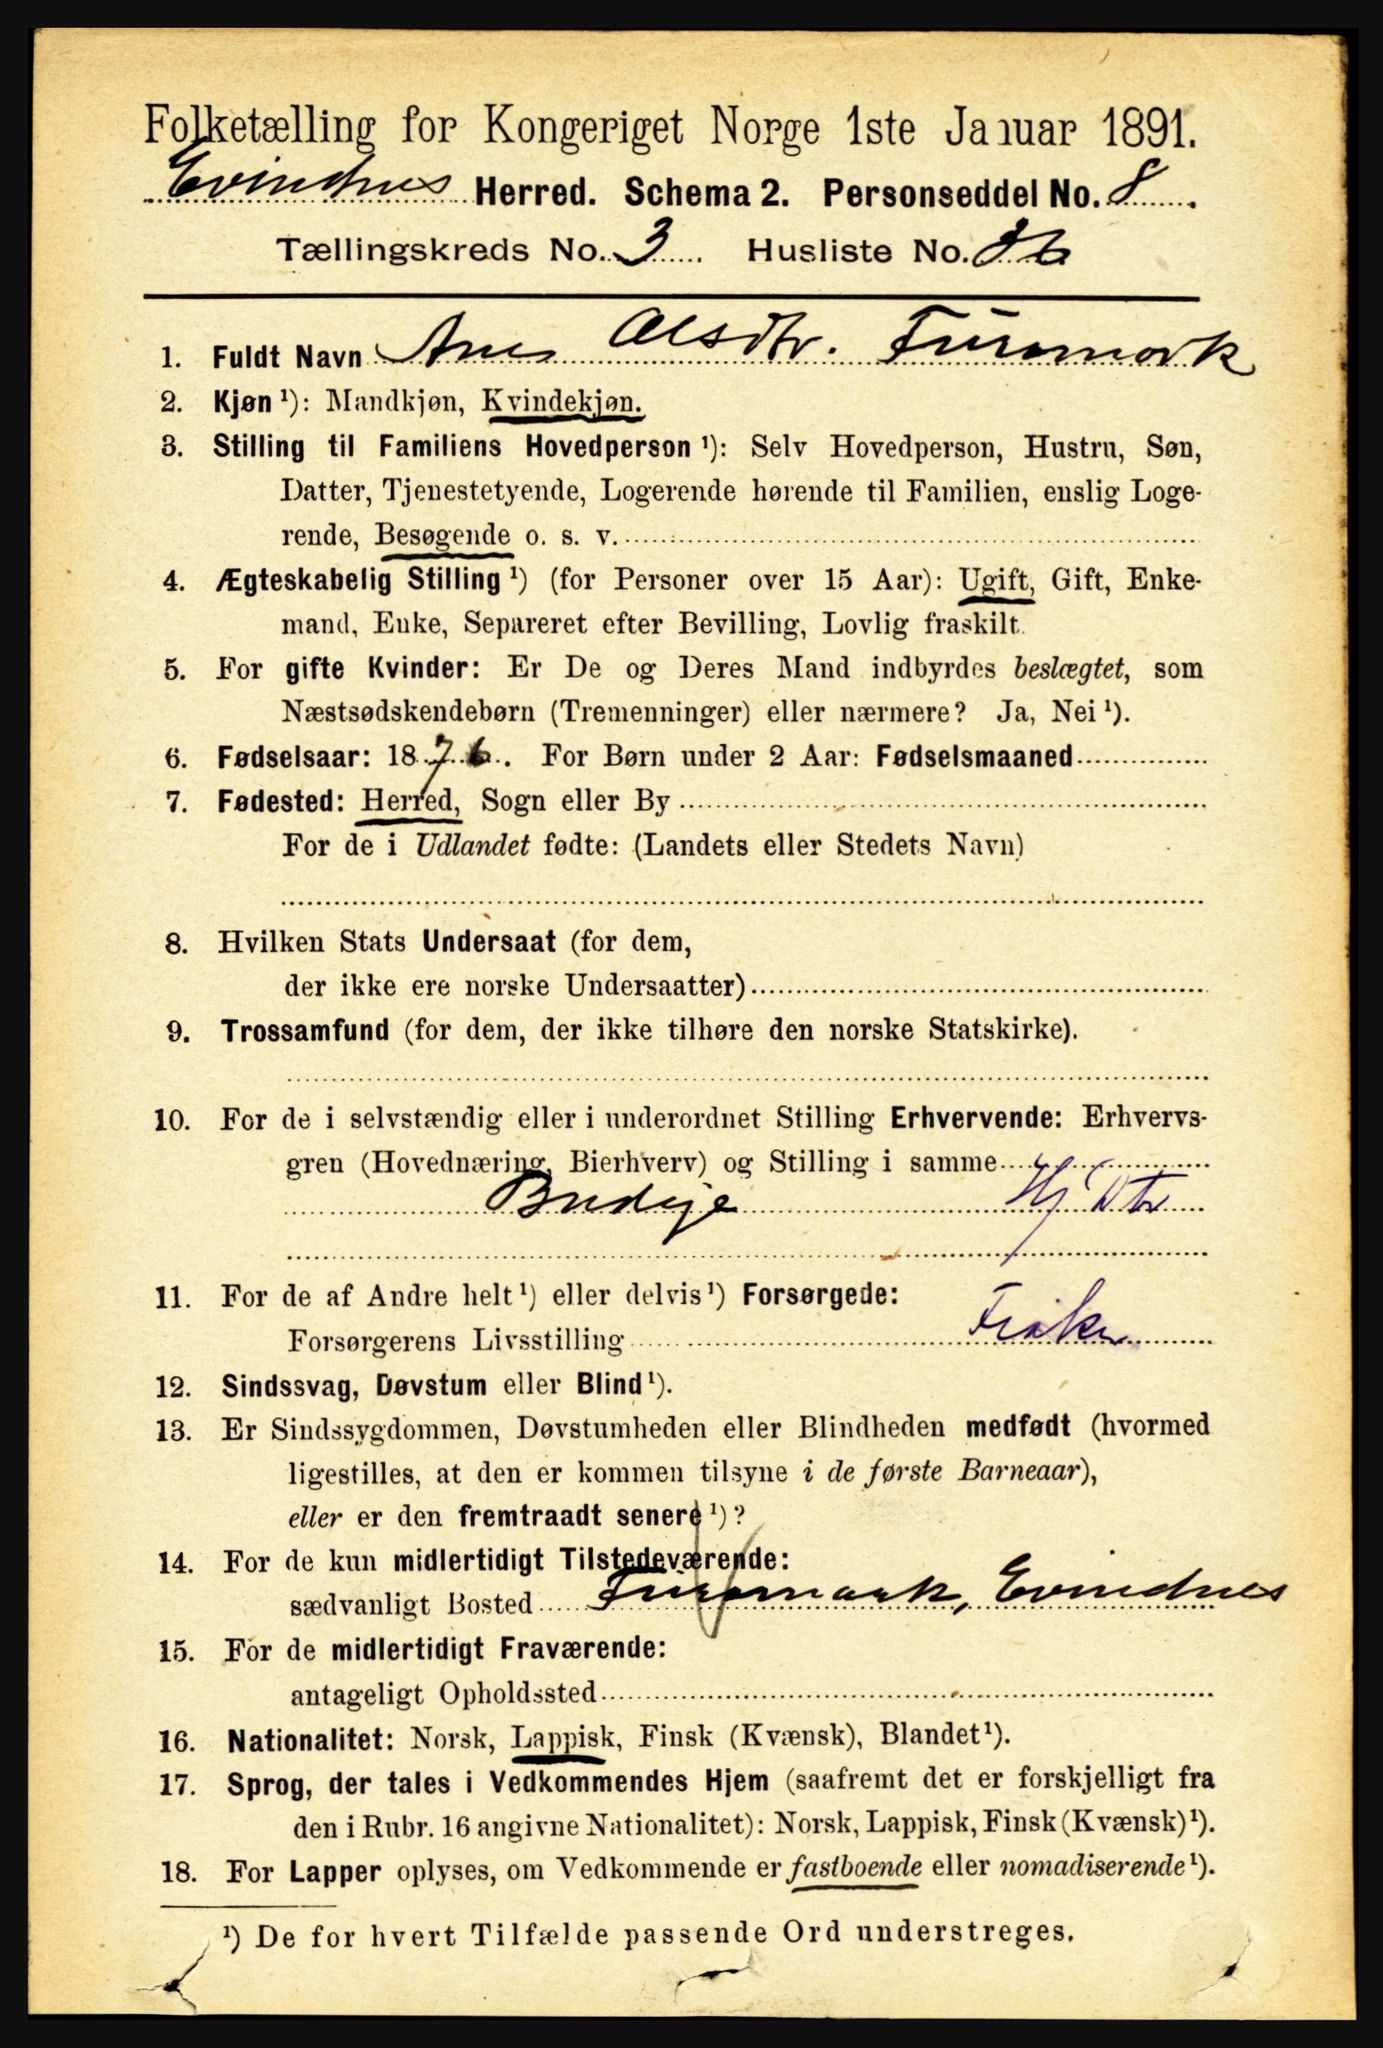 Folketælling for Kongeriget Norge 1ste Januar 1891.
Evindnes Herred. Schema 2. Personseddel No. 8.
Tællingskreds No. 3. Husliste No. 26
1. Fuldt Navn Ane Olsdtr. Furomark
2. Kjøn¹): Mandkjøn, Kvindekjøn.
3. Stilling til Familiens Hovedperson¹): Selv Hovedperson, Hustru, Søn,
Datter, Tjenestetyende, Logerende hørende til Familien, enslig Loge-
rende, Besøgende o. s. v.
4. Ægteskabelig Stilling¹) (for Personer over 15 Aar): Ugift, Gift, Enke-
mand, Enke, Separeret efter Bevilling, Lovlig fraskilt.
5. For gifte Kvinder: Er De og Deres Mand indbyrdes beslægtet, som
Næstsødskendebørn (Tremenninger) eller nærmere? Ja, Nei¹).
6. Fødselsaar: 1876. For Børn under 2 Aar: Fødselsmaaned
7. Fødested: Herred, Sogn eller By
For de i Udlandet fødte: (Landets eller Stedets Navn)
8. Hvilken Stats Undersaat (for dem,
der ikke ere norske Undersaatter)
9. Trossamfund (for dem, der ikke tilhøre den norske Statskirke).
10. For de i selvstændig eller i underordnet Stilling Erhvervende: Erhvervs-
gren (Hovednæring, Bierhverv) og Stilling i samme
Budeje Hj Dtr
11. For de af Andre helt¹) eller delvis¹) Forsørgede:
Forsørgerens Livsstilling Fisker
12. Sindssvag, Døvstum eller Blind¹).
13. Er Sindssygdommen, Døvstumheden eller Blindheden medfødt (hvormed
ligestilles, at den er kommen tilsyne i de første Barneaar),
eller er den fremtraadt senere¹)?
14. For de kun midlertidigt Tilstedeværende:
sædvanligt Bosted Furomark, Evindnes
15. For de midlertidigt Fraværende:
antageligt Opholdssted
16. Nationalitet: Norsk, Lappisk, Finsk (Kvænsk), Blandet¹).
17. Sprog, der tales i Vedkommendes Hjem (saafremt det er forskjelligt fra
den i Rubr. 16 angivne Nationalitet): Norsk, Lappisk, Finsk (Kvænsk)¹).
18. For Lapper oplyses, om Vedkommende er fastboende eller nomadiserende¹).
¹) De for hvert Tilfælde passende Ord understreges.